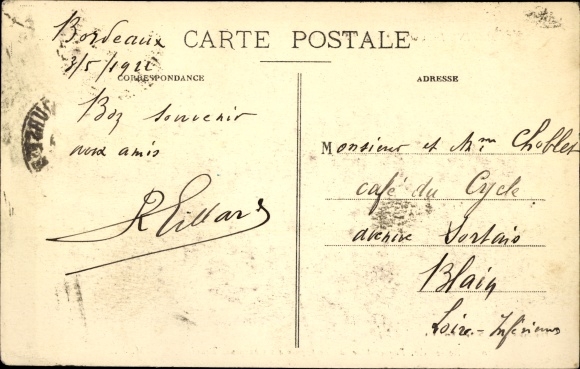 Bordeaux
CARTE POSTALE
3/5/1921
CORRESPONDANCE
ADRESSE
Bon souvenir
aux amis
Monsieur et Mme Choblet
café du Cycle
avenue Sortais
Blain
Loire-Inférieure